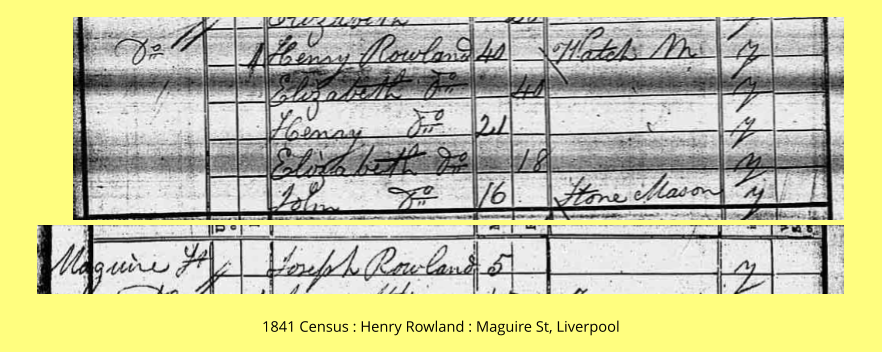 Elizabeth
Do 1 Henry Rowland 40 Watch M y
Elizabeth Do 40 y
Henry Do 20 y
Elizabeth Do 18 y
John Do 16 Stone Mason y
Maguire St Joseph Rowland 5 y
1841 Census : Henry Rowland : Maguire St, Liverpool